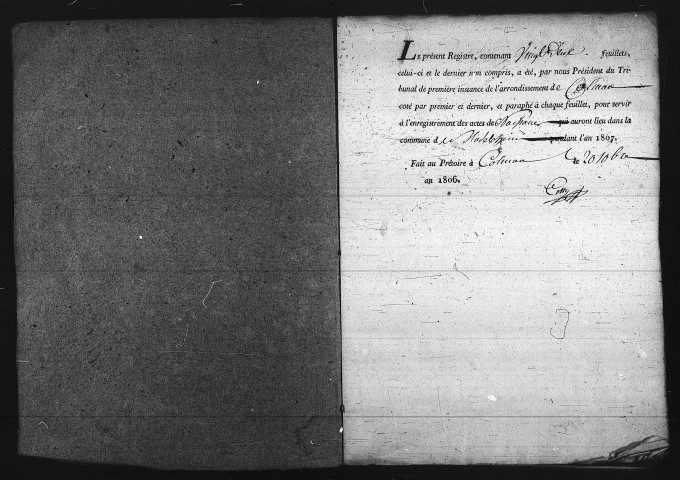 LE présent Registre, contenant Vingt Deux feuillets,
celui-ci et le dernier non compris, a été, par nous Président du Tri-
bunal de première instance de l'arrondissement de Colmar
coté par premier et dernier, et paraphé à chaque feuillet, pour servir
à l'enregistrement des actes de Naissance qui auront lieu dans la
commune de pendant l'an 1807.
Fait au Prétoire à Colmar le 20 10bre
an 1806.